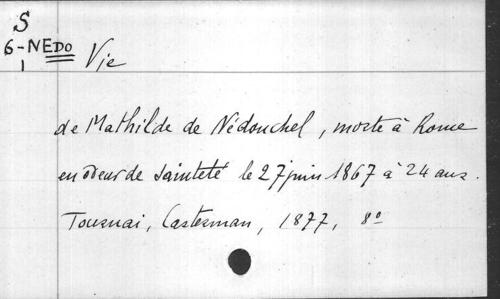 S
6-NEDO Vie
1
de Mathilde de Nédonchel, morte à Rome
en odeur de sainteté le 27 juin 1867 à 24 ans.
Tournai, Casterman, 1877, 8º